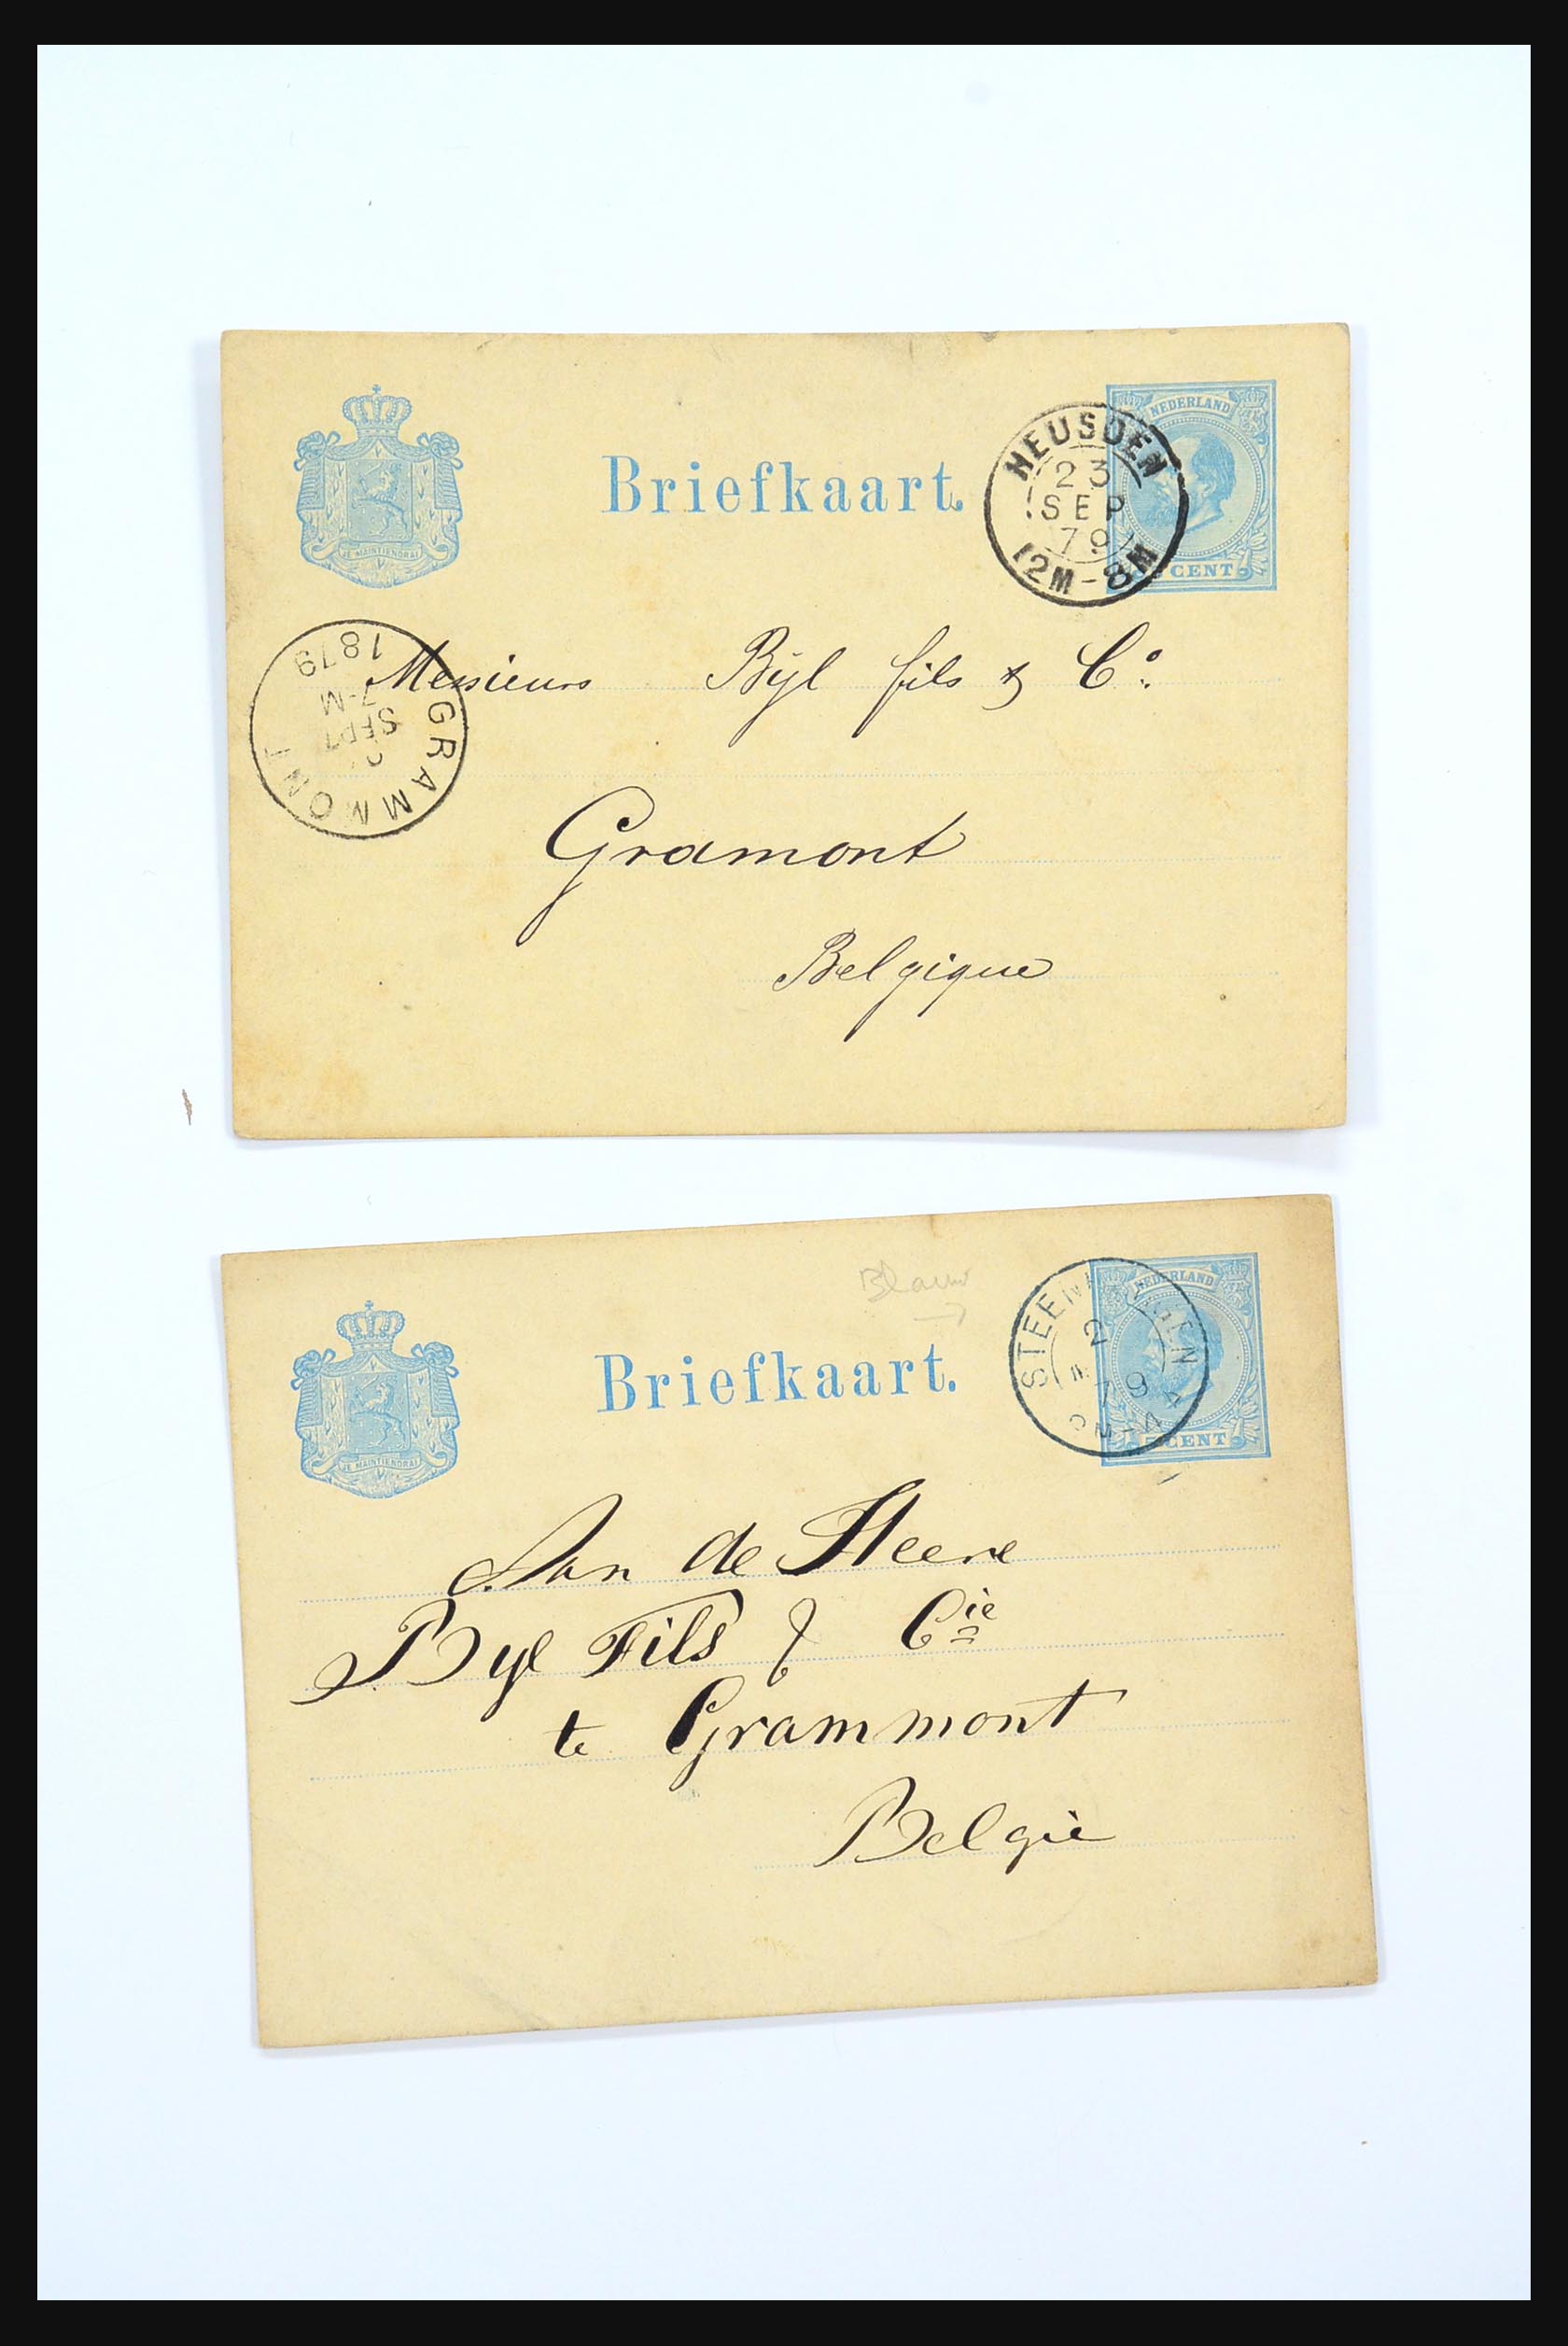 NEDERLAND
Briefkaart.
HEUSDEN
23
SEP
79
12M-8M
CENT
JE MAINTIENDRAI
1879
7-M
SEPT
GRAMMONT
Messieurs Bÿl fils & Co.
Gramont
Belgique
Blauw
NEDERLAND
Briefkaart.
2
79
CENT
JE MAINTIENDRAI
Aan de Heere
Byl Fils & Cie
te Grammont
Belgie